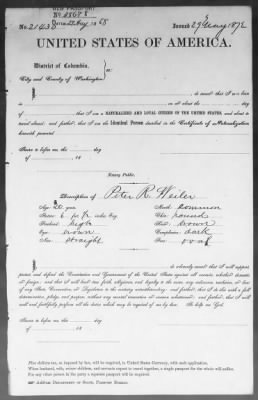 OLD PASSPORT
No. 21430
Issued 29 Aug 1872
UNITED STATES OF AMERICA.
District of Columbia,
City and County of Washington,
that I am a NATURALIZED AND LOYAL CITIZEN OF THE UNITED STATES, and about to
travel abroad; and further, that I am the Identical Person described in the Certificate of Naturalization
herewith presented
Sworn to before me this day
of 18
Notary Public.
Description of Peter R. Weiler
Age: years Mouth: Common
Stature: 6 feet inches Eng. Chin: round
Forehead: high Hair: brown
Eyes: brown Complexion: dark
Nose: straight Face: oval
I, do solemnly swear that I will support,
protect, and defend the Constitution and Government of the United States against all enemies, whether domestic
or foreign; and that I will bear true faith, allegiance and loyalty to the same, any ordinance, resolution, or law
of any State, Convention, or Legislature to the contrary notwithstanding; and further, that I do this with a full
determination, pledge, and purpose, without any mental reservation or evasion whatsoever; and further, that I will
well and faithfully perform all the duties which may be required of me by law. So help me God.
Sworn to before me this day
of 18
Five dollars tax, as required by law, will be required in United States Currency, with each application.
When husband, wife, minor children, and servants expect to travel together, a single passport for the whole will suffice.
For any other person in the party a separate passport will be required.
ADDRESS DEPARTMENT OF STATE, PASSPORT BUREAU.